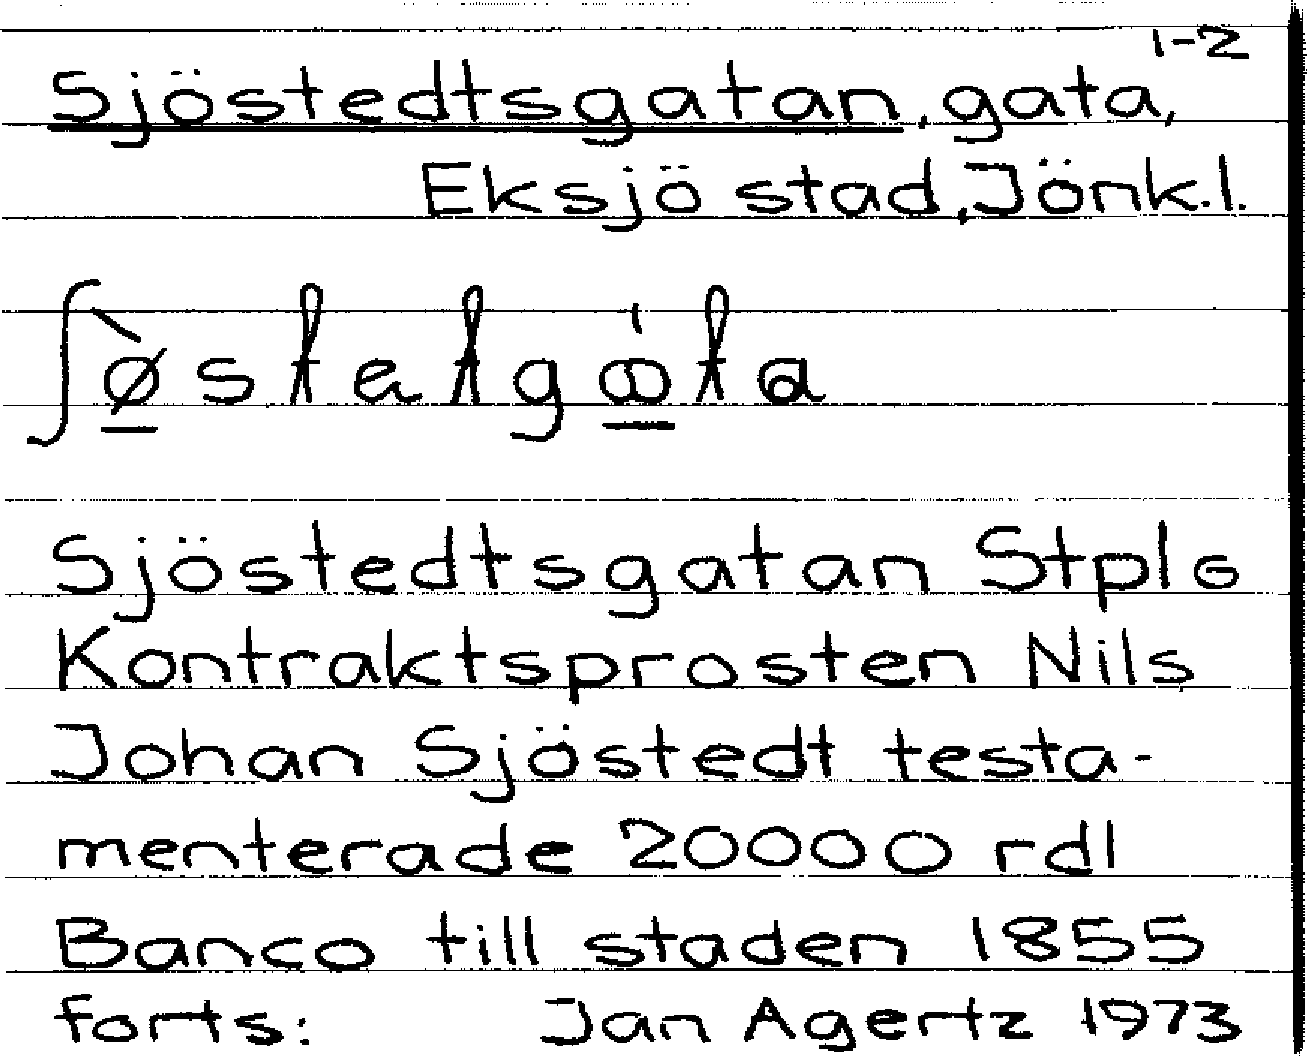 1-2
Sjöstedtsgatan, gata,
Eksjö stad, Jönk.l.
Sjöstedtsgatan Stpl 6
Kontraktsprosten Nils
Johan Sjöstedt testa-
menterade 20000 rdl
Banco till staden 1855
forts: Jan Agertz 1973